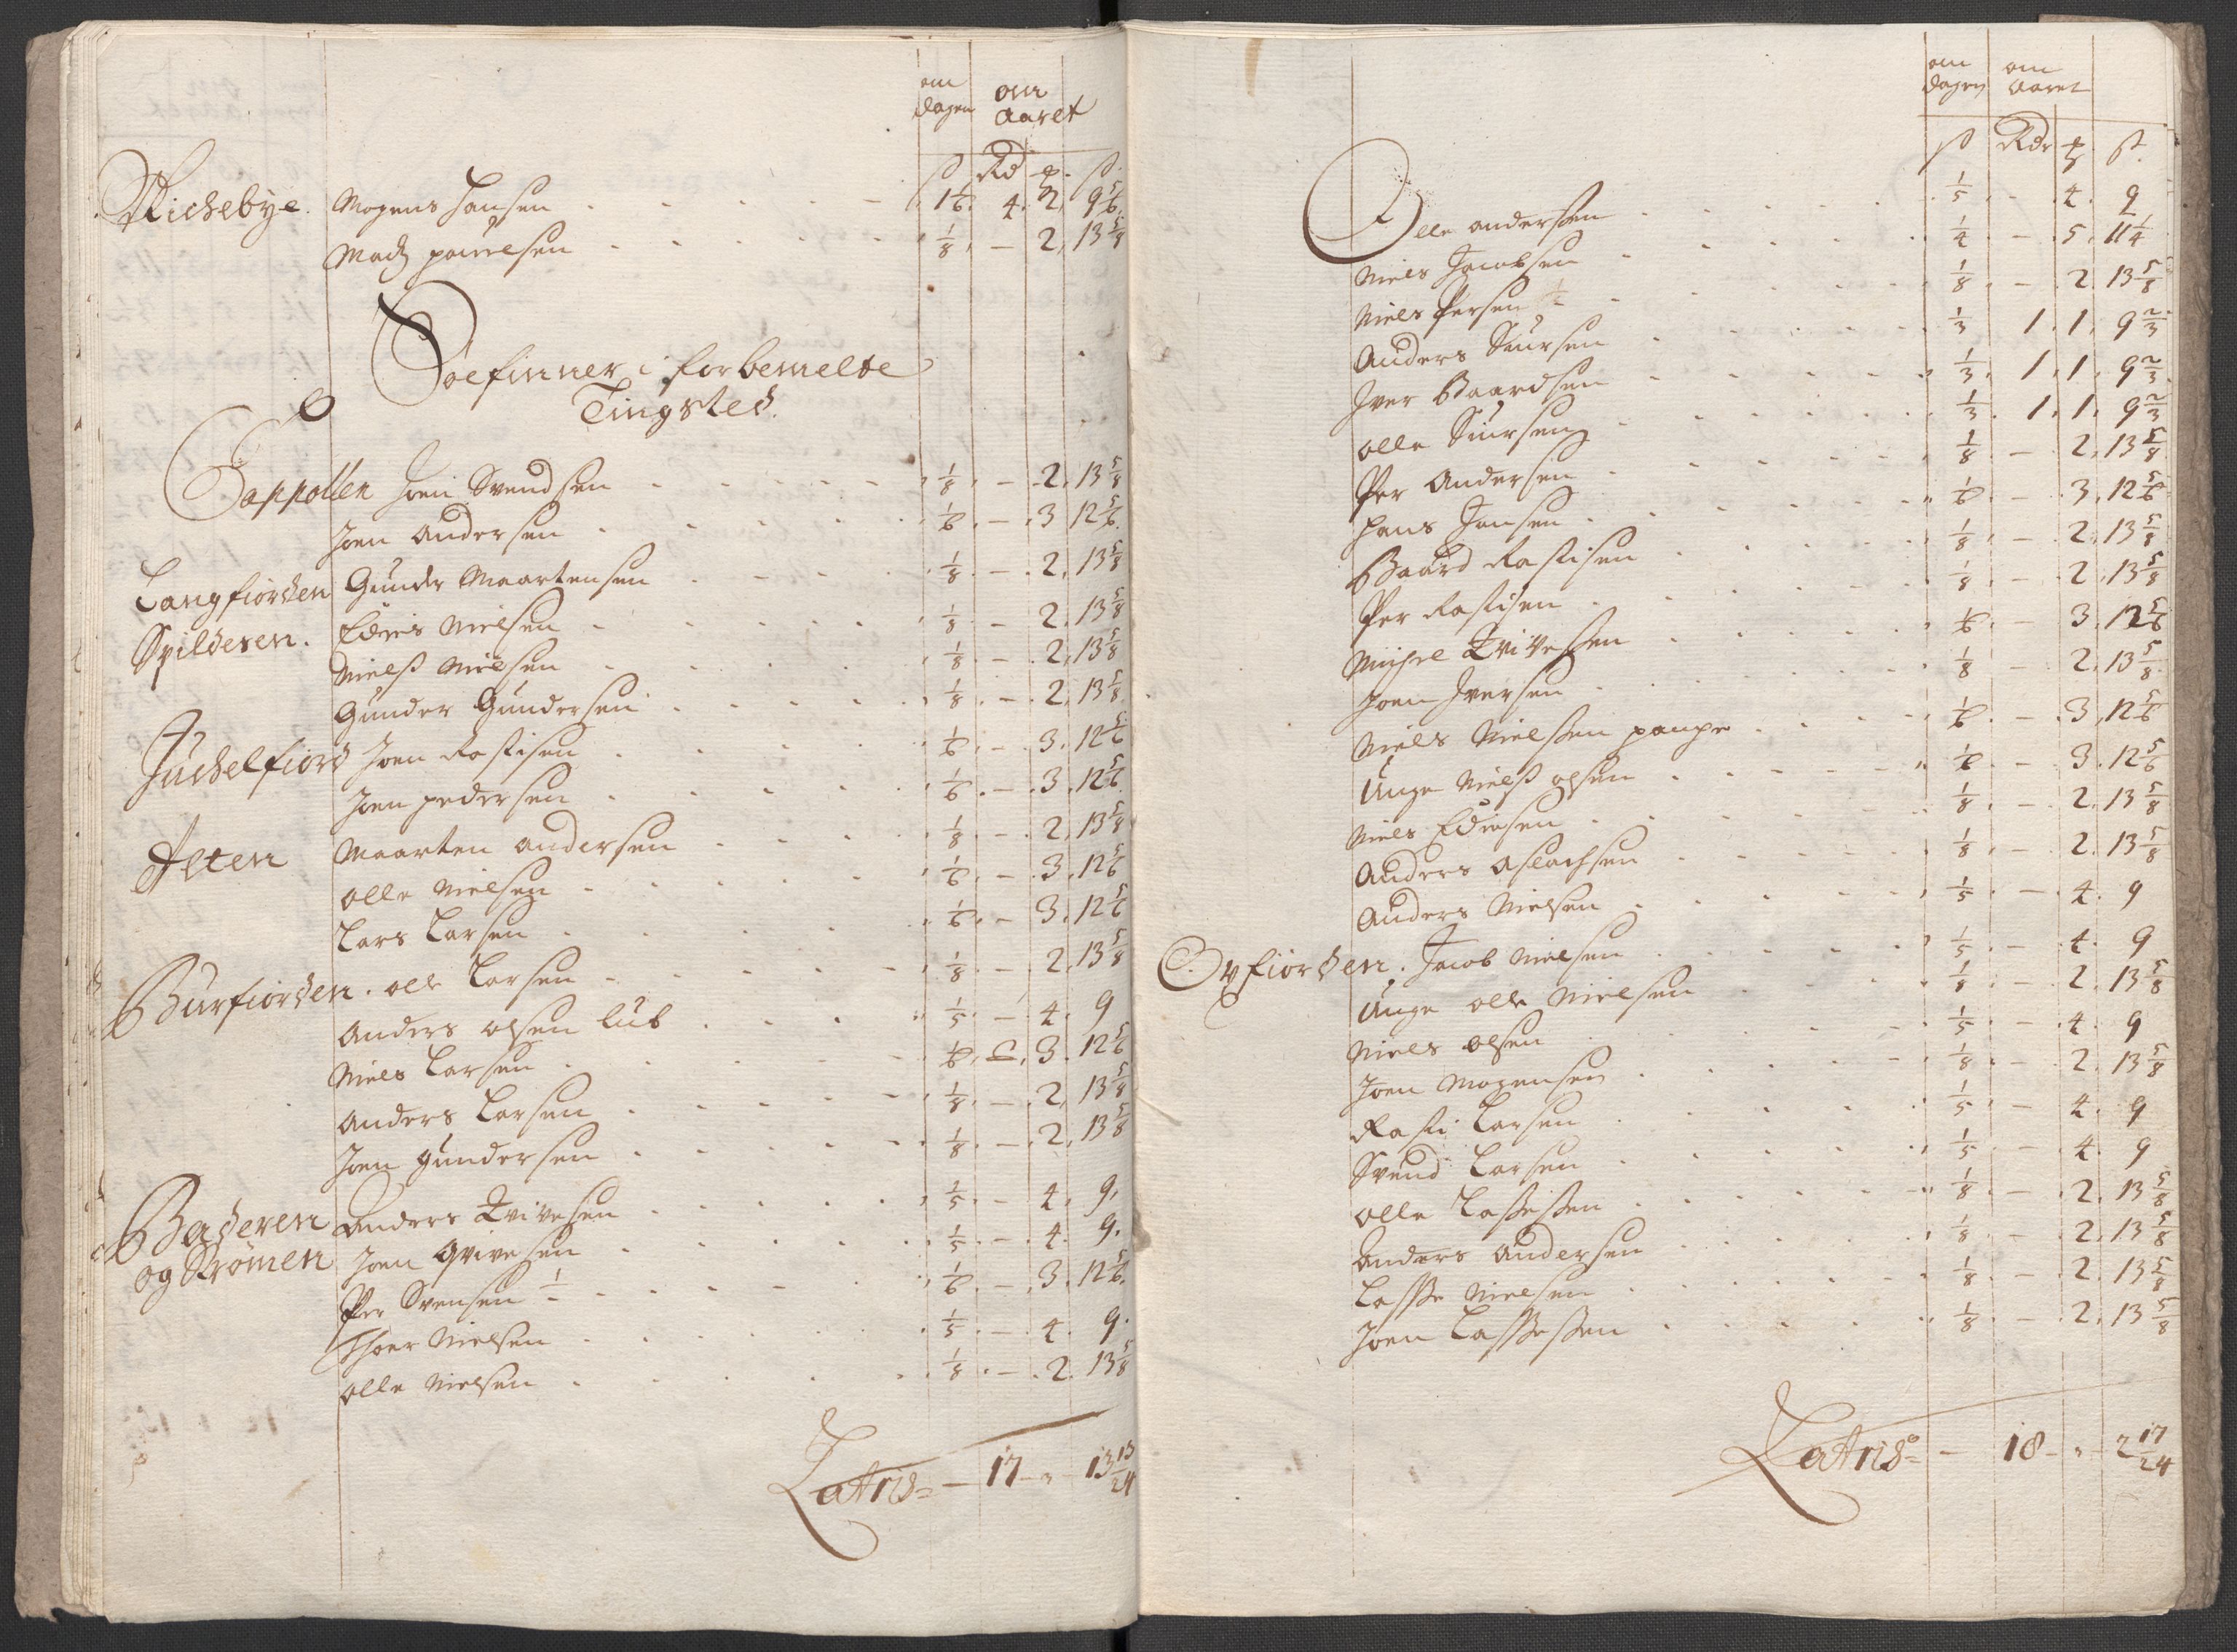 om dagen om Aaret
ß Rd ₻ ß
Richebye. Mogens Hansen - 1 1/6. 4. 2. 9 5/6
Madz pouelsen 1/8. - 2. 13 5/8
Søefinner i forbemelte
Tingsted.
Tappollen Joen Svendsen - 1/8. - 2. 13 5/8
Joen Andersen 1/6. - 3 12 5/6.
Langfiorden Gunder Maartensen 1/8. - 2. 13 5/8
Spilderen. Edies Nielsen - 1/8. - 2. 13 5/8
Nielß Nielsen 1/8. - 2. 13 5/8
Gunder Gundersen 1/8. - 2. 13 5/8.
Juchelfiord Joen Rastisen 1/6. - 3. 12 5/6
Joen pedersen 1/6. - 3. 12 5/6.
Alten Maarten andersen 1/8. - 2. 13 5/8
olle Nielsen 1/6. - 3. 12 5/6
Lars Larsen 1/6. - 3. 12 5/6
Burfiorden. olle Larsen - 1/8. - 2. 13 5/8
Anders olsen lub 1/5. - 4. 9
Niels Larsen 1/6. 3. 12 5/6
Anders Larsen 1/8. - 2. 13 5/8
Joen gundersen 1/8. - 2. 13 5/8
Baderen Anders Qvivesen 1/5. - 4. 9.
og Strømen Joen Qvivesen 1/5. - 4. 9.
Per Svensen 1/6. - 3. 12 5/6.
Thoer Nielsen 1/5. - 4. 9.
olle Nielsen 1/8. - 2. 13 5/8
Latris - 17 - 13 13/24
om dagen om Aaret
ß Rdr ₻ ß.
Olle anderssen 1/5. - 4. 9
Niels Jacobsen 1/4. - 5. 11 1/4
Niels Persen 1/8. - 2. 13 5/8
Anders Siursen 1/3 1. 1. 9 2/3
Iver Baardsen 1/3. 1. 1. 9 2/3.
olle Siursen 1/3. 1. 1. 9 2/3
Per Andersen 1/8. - 2. 13 5/8
Hans Jonsen 1/6. - 3. 12 5/6
Baard Rastisen 1/8. - 2. 13 5/8
Per Rastisen 1/8. - 2. 13 5/8
Michel Qvivessen 1/6. - 3. 12 5/6
Joen Iversen 1/8 - 2. 13 5/8.
Niels Nielssen paape 1/6. - 3. 12 5/6
Unge Nielß olsen 1/6. - 3. 12 5/6
Niels Ediesen 1/8. - 2. 13 5/8
Anders Aslachsen 1/8. - 2. 13 5/8
Anders Nielsen 1/5. - 4. 9
Øxfiorden. Jacob Nielsen 1/5. - 4. 9
Unge olle Nielsen 1/8. - 2. 13 5/8
Niels olsen 1/5. - 4. 9
Joen Mogensen 1/8. - 2. 13 5/8
Rasti Larsen 1/5. - 4. 9
Svend Larsen 1/5 - 4. 9
Olle Lassessen 1/8. - 2. 13 5/8
Anders Andersen 1/8. - 2. 13 5/8
Lasse Nielsen 1/8. - 2. 13 5/8
Joen Lassessen 1/8. - 2. 13 5/8
Latris - 18 - 2 17/24